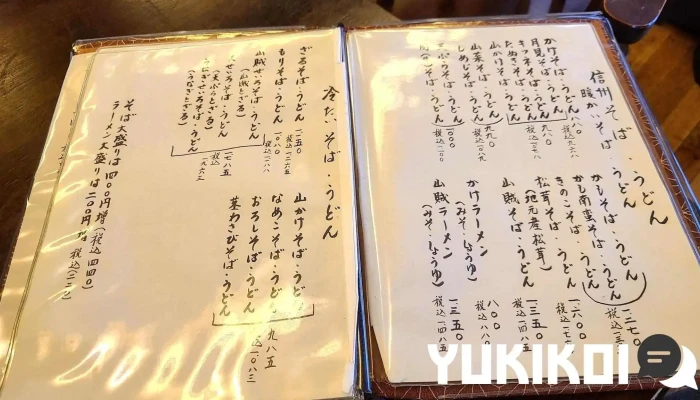 信州そば・うどん
暖かいそば・うどん
かけそば・うどん 八八〇
月見そば・うどん
きつねそば・うどん
たぬきそば・うどん 九八〇
山菜そば・うどん
しめじそば・うどん 九九〇 税込一〇八九
天ぷらそば・うどん 一〇〇〇 税込一一〇〇
かしわそば・うどん
かし南蛮そば・うどん 一二七〇
きのこそば・うどん 一六〇〇
松茸そば・うどん
(地元産松茸)
山賊そば・うどん 一三五〇 税込一四八五
かけラーメン 八〇〇 税込八八〇
(みそ・しょうゆ)
山賊ラーメン 一三五〇 税込一四八五
(みそ・しょうゆ)
冷たいそば・うどん
ざるそば・うどん
もりそば・うどん
山賊せいろそば・うどん
(山賊とざる)
せいろそば・うどん
(天ぷらとざる)
うなぎせいろそば・うどん
(うなぎとざる)
山かけそば・うどん
なめこそば・うどん
おろしそば・うどん
茎わさびそば・うどん
九八五 税込一〇八三
そば大盛りは四〇〇円増(税込四四〇)
ラーメン大盛りは二〇〇円増 税込二二〇
YUKIKOI